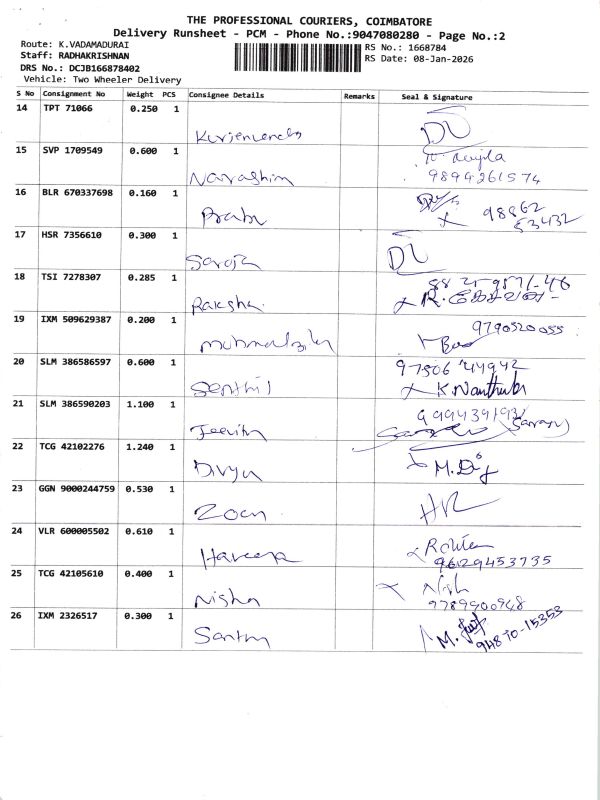 THE PROFESSIONAL COURIERS, COIMBATORE
Delivery Runsheet - PCM - Phone No.:9047080280 - Page No.:2
Route: K.VADAMADURAI
RS No.: 1668784
Staff: RADHAKRISHNAN
RS Date: 08-Jan-2026
DRS No.: DCJB166878402
Vehicle: Two Wheeler Delivery
S No Consignment No Weight PCS Consignee Details Remarks Seal & Signature
14 TPT 71066 0.250 1
15 SVP 1709549 0.600 1
Narashim 9894261574
16 BLR 670337698 0.160 1
Prabu 98862
53432
17 HSR 7356610 0.300 1
Saroja
18 TSI 7278307 0.285 1
Raksha
19 IXM 509629387 0.200 1
9790520055
20 SLM 386586597 0.600 1
97506 44942
Senthil K.Nanthu
21 SLM 386590203 1.100 1
Jeevitha
22 TCG 42102276 1.240 1
Divya M.Di
23 GGN 9000244759 0.530 1
Zoen HR
24 VLR 600005502 0.610 1
Hareena 9629453735
25 TCG 42105610 0.400 1
Nish
Nisha 9789900948
26 IXM 2326517 0.300 1
Santhy M. 94870-15353